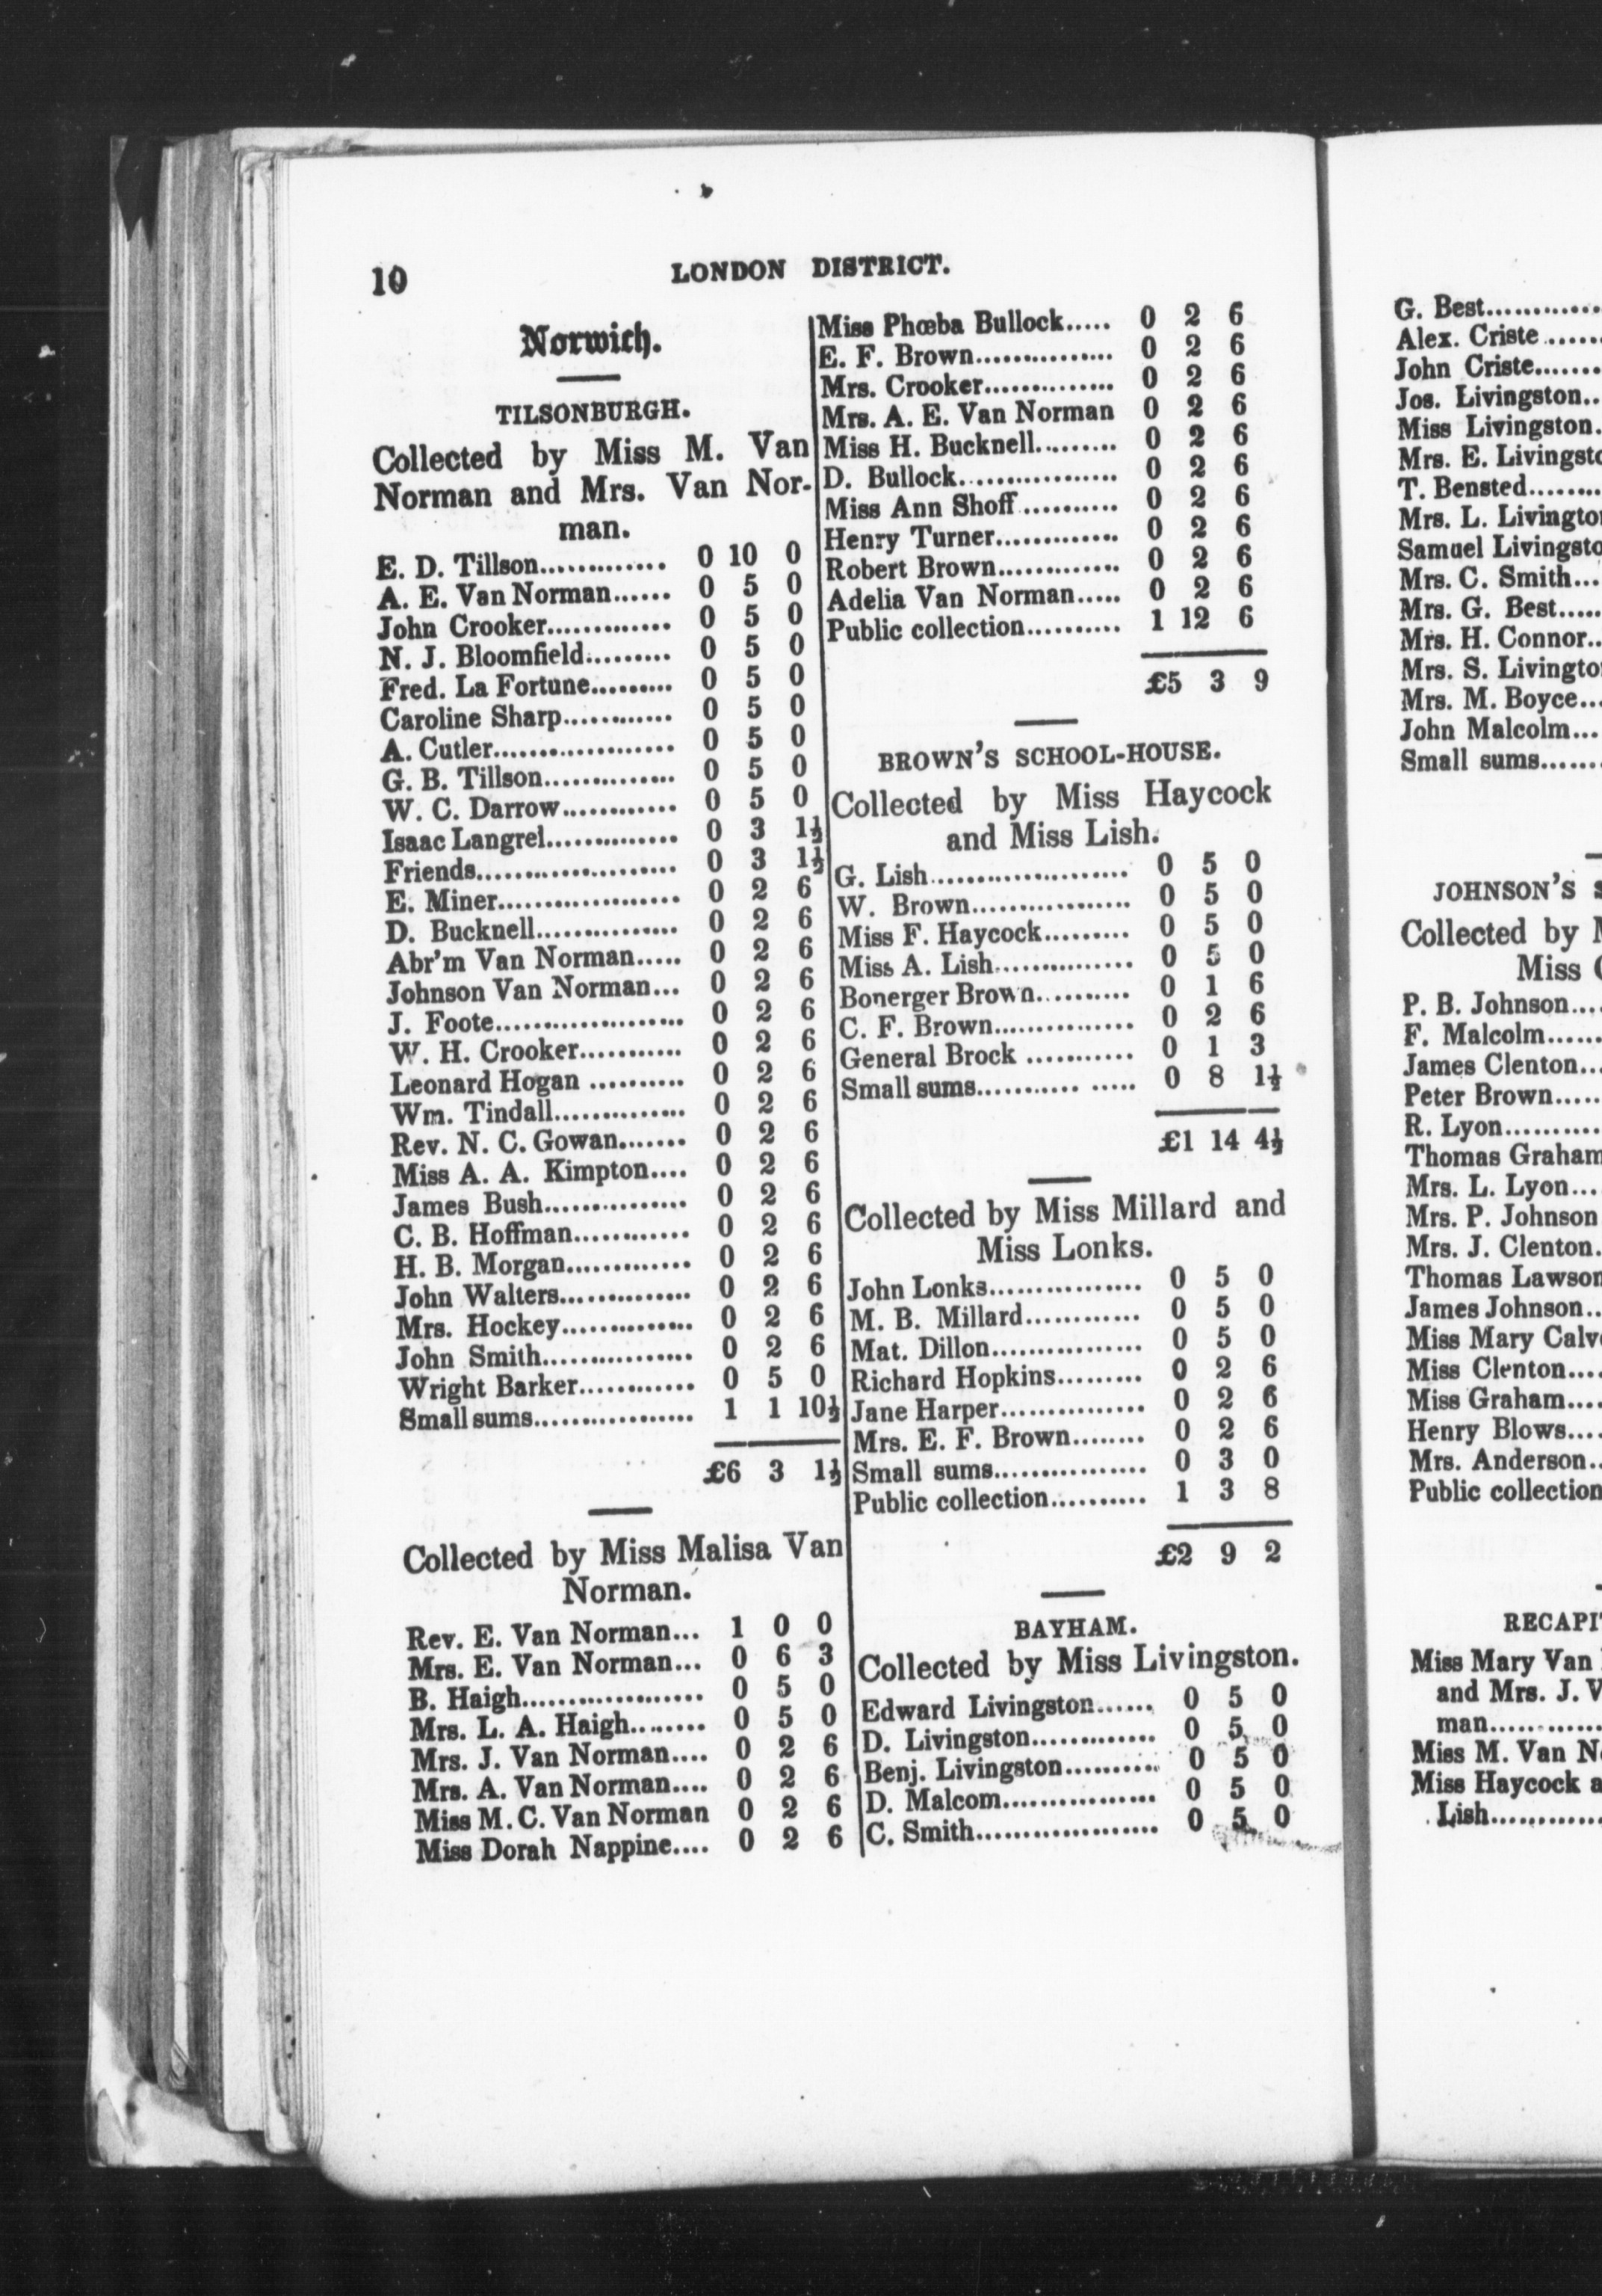 10
LONDON DISTRICT.
Norwich.
TILSONBURGH.
Collected by Miss M. Van
Norman and Mrs. Van Nor-
man.
E. D. Tillson............. 0 10 0
A. E. Van Norman...... 0 5 0
John Crooker............. 0 5 0
N. J. Bloomfield......... 0 5 0
Fred. La Fortune......... 0 5 0
Caroline Sharp............ 0 5 0
A. Cutler.................... 0 5 0
G. B. Tillson.............. 0 5 0
W. C. Darrow............ 0 5 0
Isaac Langrel.............. 0 3 1½
Friends...................... 0 3 1½
E. Miner.................... 0 2 6
D. Bucknell............... 0 2 6
Abr'm Van Norman..... 0 2 6
Johnson Van Norman... 0 2 6
J. Foote..................... 0 2 6
W. H. Crooker........... 0 2 6
Leonard Hogan .......... 0 2 6
Wm. Tindall.............. 0 2 6
Rev. N. C. Gowan....... 0 2 6
Miss A. A. Kimpton.... 0 2 6
James Bush............... 0 2 6
C. B. Hoffman............ 0 2 6
H. B. Morgan............. 0 2 6
John Walters.............. 0 2 6
Mrs. Hockey.............. 0 2 6
John Smith................ 0 2 6
Wright Barker............ 0 5 0
Small sums................. 1 1 10½
£6 3 1½
Collected by Miss Malisa Van
Norman.
Rev. E. Van Norman... 1 0 0
Mrs. E. Van Norman... 0 6 3
B. Haigh.................... 0 5 0
Mrs. L. A. Haigh........ 0 5 0
Mrs. J. Van Norman.... 0 2 6
Mrs. A. Van Norman.... 0 2 6
Miss M. C. Van Norman 0 2 6
Miss Dorah Nappine.... 0 2 6
Miss Phœba Bullock..... 0 2 6
E. F. Brown............... 0 2 6
Mrs. Crooker.............. 0 2 6
Mrs. A. E. Van Norman 0 2 6
Miss H. Bucknell......... 0 2 6
D. Bullock................. 0 2 6
Miss Ann Shoff .......... 0 2 6
Henry Turner............. 0 2 6
Robert Brown............. 0 2 6
Adelia Van Norman..... 0 2 6
Public collection.......... 1 12 6
£5 3 9
BROWN'S SCHOOL-HOUSE.
Collected by Miss Haycock
and Miss Lish.
G. Lish...................... 0 5 0
W. Brown.................. 0 5 0
Miss F. Haycock......... 0 5 0
Miss A. Lish............... 0 5 0
Bonerger Brown.......... 0 1 6
C. F. Brown............... 0 2 6
General Brock ........... 0 1 3
Small sums........... ..... 0 8 1½
£1 14 4½
Collected by Miss Millard and
Miss Lonks.
John Lonks................. 0 5 0
M. B. Millard............ 0 5 0
Mat. Dillon................ 0 5 0
Richard Hopkins......... 0 2 6
Jane Harper............... 0 2 6
Mrs. E. F. Brown........ 0 2 6
Small sums................ 0 3 0
Public collection.......... 1 3 8
£2 9 2
BAYHAM.
Collected by Miss Livingston.
Edward Livingston...... 0 5 0
D. Livingston............. 0 5 0
Benj. Livingston.......... 0 5 0
D. Malcom................ 0 5 0
C. Smith.................... 0 5 0
G. Best............
Alex. Criste ......
John Criste.......
Jos. Livingston..
Miss Livingston.
Mrs. E. Livingsto
T. Bensted........
Mrs. L. Livingto
Samuel Livingsto
Mrs. C. Smith...
Mrs. G. Best.....
Mrs. H. Connor..
Mrs. S. Livingto
Mrs. M. Boyce...
John Malcolm...
Small sums.......
JOHNSON'S S
Collected by
Miss
P. B. Johnson....
F. Malcolm......
James Clenton...
Peter Brown.....
R. Lyon..........
Thomas Graham
Mrs. L. Lyon...
Mrs. P. Johnson
Mrs. J. Clenton.
Thomas Lawson
James Johnson..
Miss Mary Calv
Miss Clenton....
Miss Graham....
Henry Blows....
Mrs. Anderson..
Public collection
RECAPI
Miss Mary Van
and Mrs. J. V
man............
Miss M. Van N
Miss Haycock a
Lish............